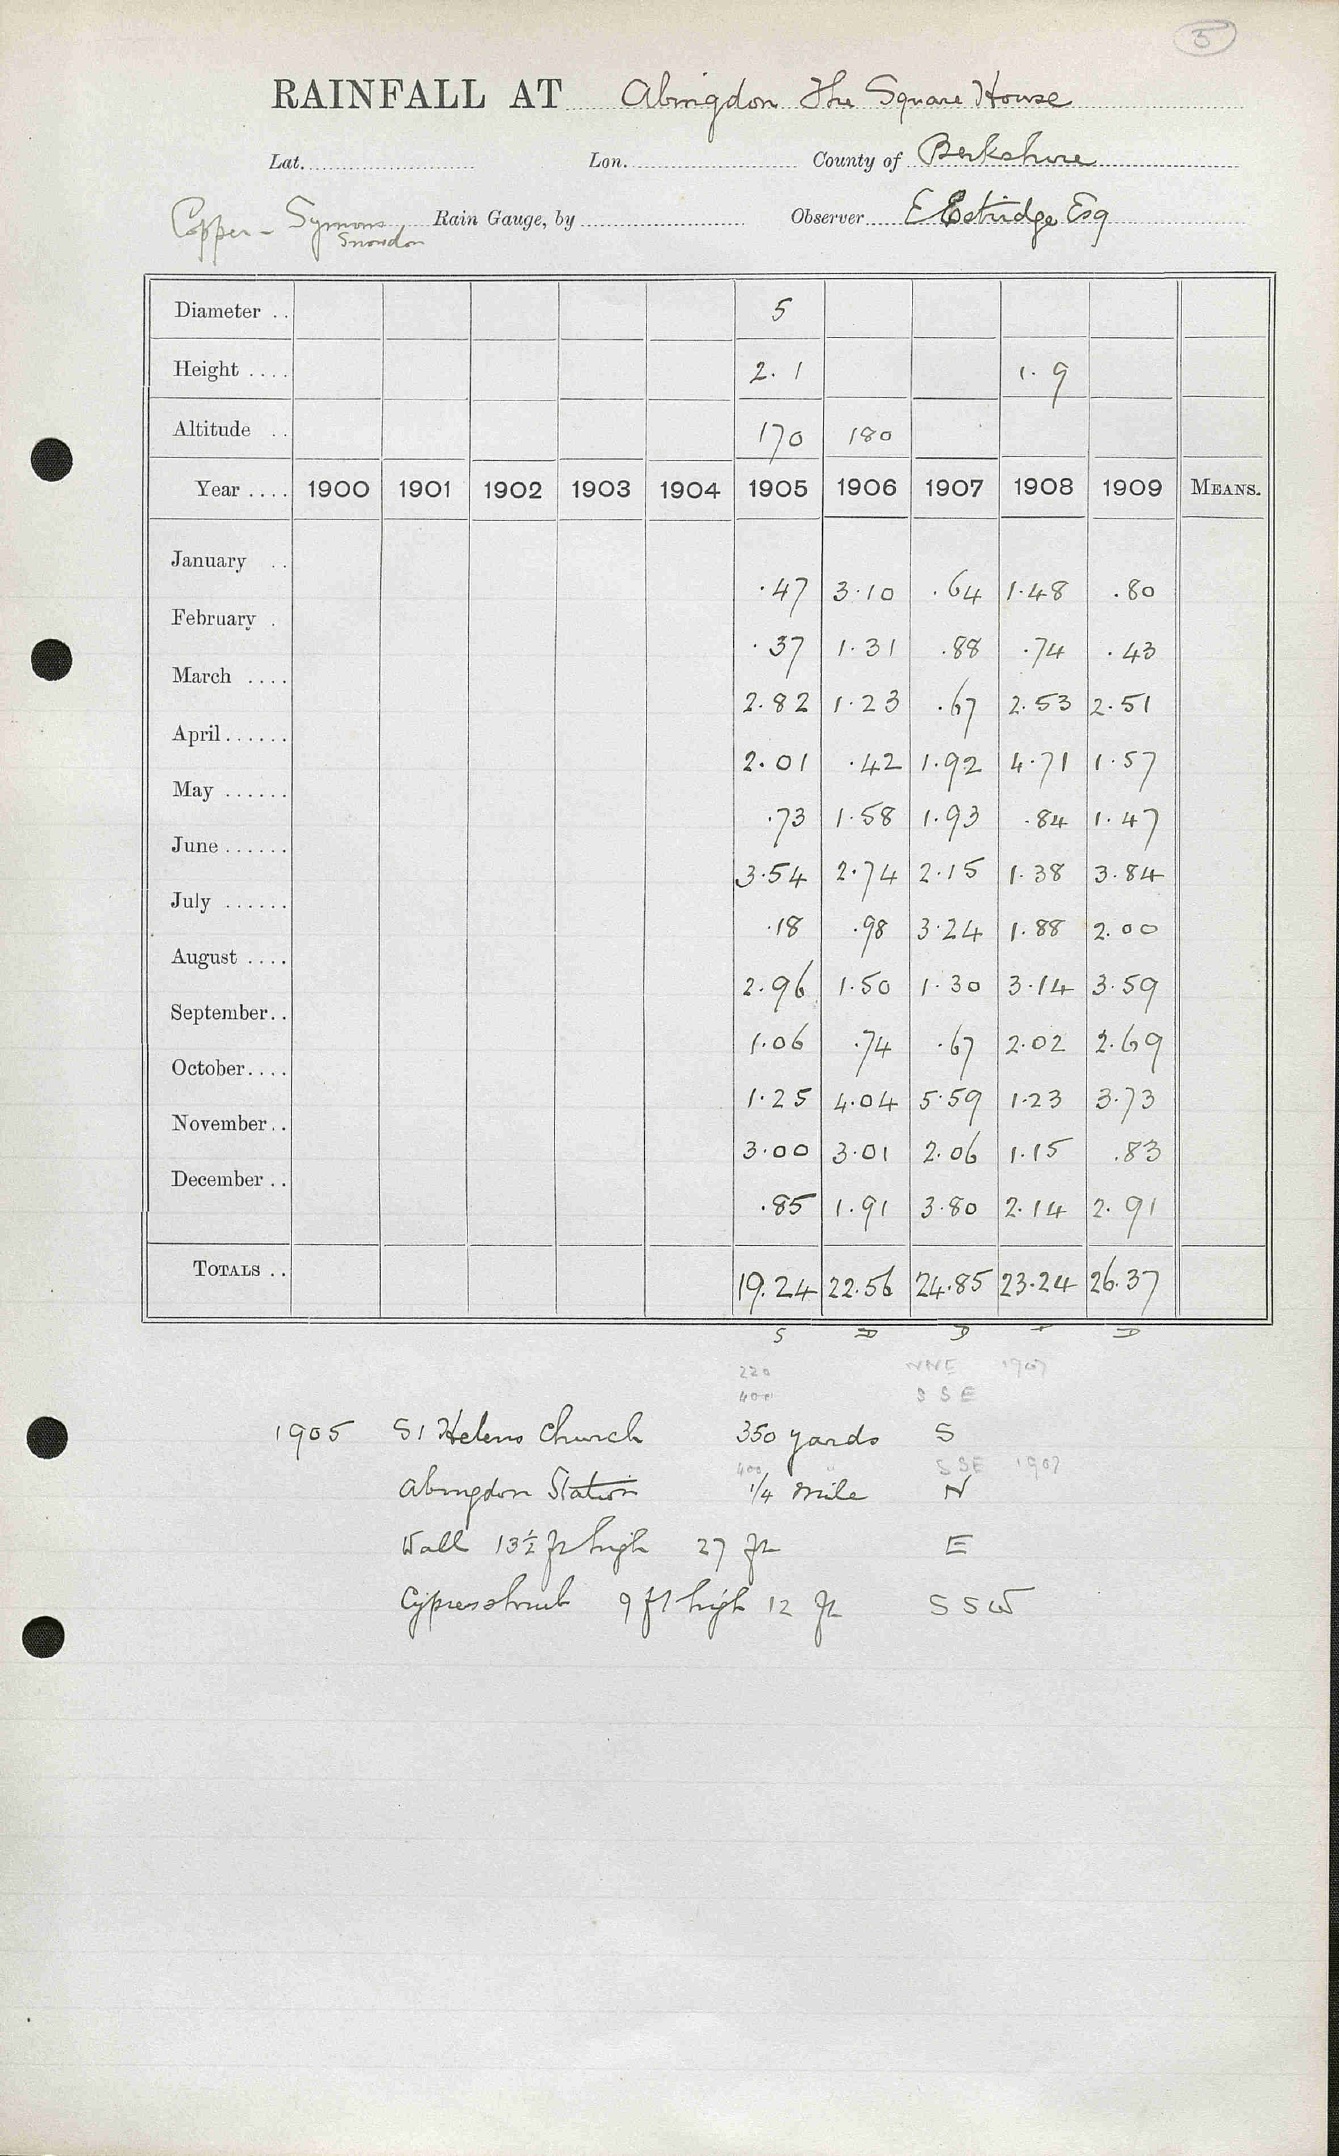 5
RAINFALL AT Abingdon The Square House
Lat. Lon. County of Berkshire
Copper - Symons Snowdon Rain Gauge, by Observer E Estridge Esq
Diameter .. 5
Height .... 2.1 1.9
Altitude .. 170 180
Year .... 1900 1901 1902 1903 1904 1905 1906 1907 1908 1909 MEANS.
January .. .47 3.10 .64 1.48 .80
February . .37 1.31 .88 .74 .43
March .... 2.82 1.23 .67 2.53 2.51
April...... 2.01 .42 1.92 4.71 1.57
May ...... .73 1.58 1.93 .84 1.47
June ...... 3.54 2.74 2.15 1.38 3.84
July ...... .18 .98 3.24 1.88 2.00
August .... 2.96 1.50 1.30 3.14 3.59
September.. 1.06 .74 .67 2.02 2.69
October.... 1.25 4.04 5.59 1.23 3.73
November.. 3.00 3.01 2.06 1.15 .83
December .. .85 1.91 3.80 2.14 2.91
TOTALS .. 19.24 22.56 24.85 23.24 26.37
220 NNE 1907
400 SSE
1905 St Helens Church 350 yards S
400 " SSE 1907
Abingdon Station 1/4 mile N
Wall 13½ ft high 27 ft E
Cypress shrub 9 ft high 12 ft SSW